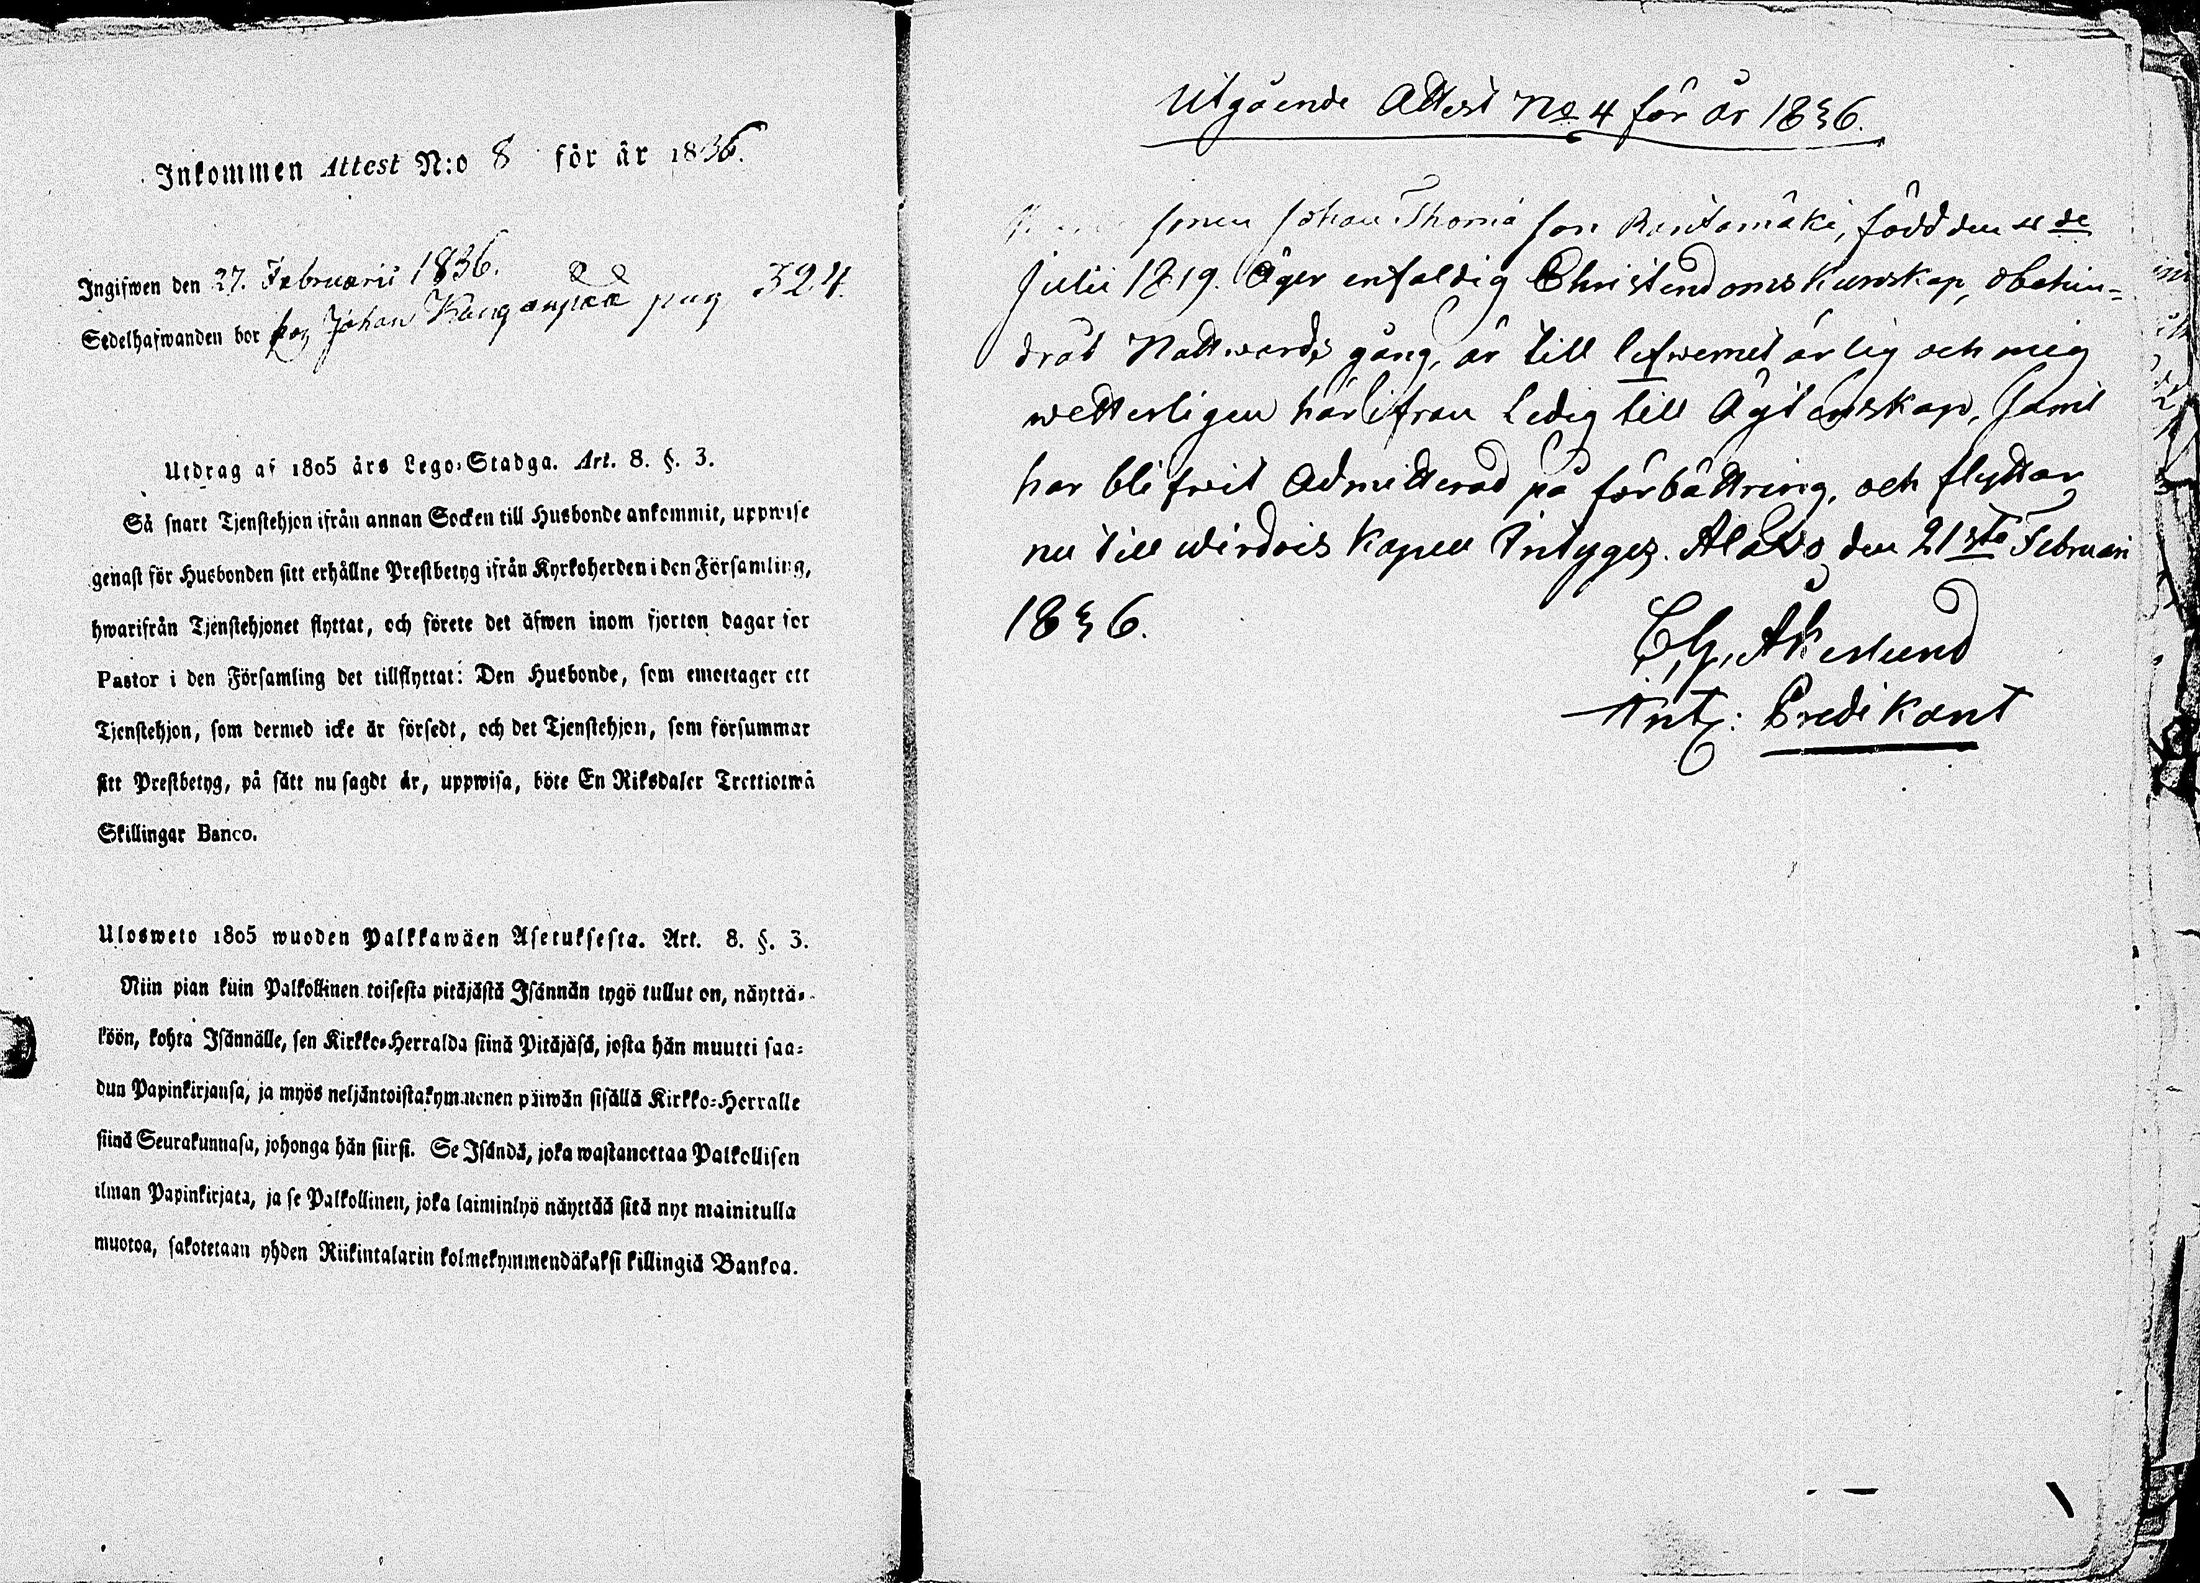 Inkommen Attest N:o 8 för år 1836.
Ingifwen den 27. Februarii 1836.
Sedelhafwanden bor hos Johan Kanganpää pag 324.
Utdrag af 1805 års Lego-Stadga. Art. 8. §. 3.
Så snart Tjenstehjon ifrån annan Socken till Husbonde ankommit, uppwise
genast för Husbonden sitt erhållne Prestbetyg ifrån Kyrkoherden i den Församling,
hwarifrån Tjenstehjonet flyttat, och förete det äfwen inom fjorton dagar for
Pastor i den Församling det tillflyttat: Den Husbonde, som emottager ett
Tjenstehjon, som dermed icke är försedt, och det Tjenstehjon, som försummar
sitt Prestbetyg, på sätt nu sagdt är, uppwisa, böte En Riksdaler Trettiotwå
Skillingar Banco.
Ulosweto 1805 wuoden Palkkawäen Asetuksesta. Art. 8. §. 3.
Niin pian kuin Palkollinen toisesta pitäjästä Isännän tygö tullut on, näyttä-
köön, kohta Isännälle, sen Kirkko-Herralda siinä Pitäjäsä, josta hän muutti saa-
dun Papinkirjansa, ja myös neljäntoistakymmenen päiwän sisällä Kirkko-Herralle
siinä Seurakunnasa, johonga hän siirsi. Se Isändä, joka wastanottaa Palkollisen
ilman Papinkirjata, ja se Palkollinen, joka laiminlyö näyttää sitä nyt mainitulla
muotoa, sakotetaan yhden Riikintalarin kolmekymmendäkaksi killingiä Bankoa.
Utgående Attest No 4 för år 1836.
sonen Johan Thomä son Rantamäki, född den
Julii 1819. Äger enfaldig Christendoms Kunskap, obehin-
drat Nattwards gång, är till lefwernet ärlig och mig
wetterligen härifrån Ledig till Ägtenskap, samt
har blifwit Admitterad på förbättring, och flyttar
nu till Wirdois Kapell Intygas. Alavo den 21sta Februari
1836.
Åkerlund
Predikant